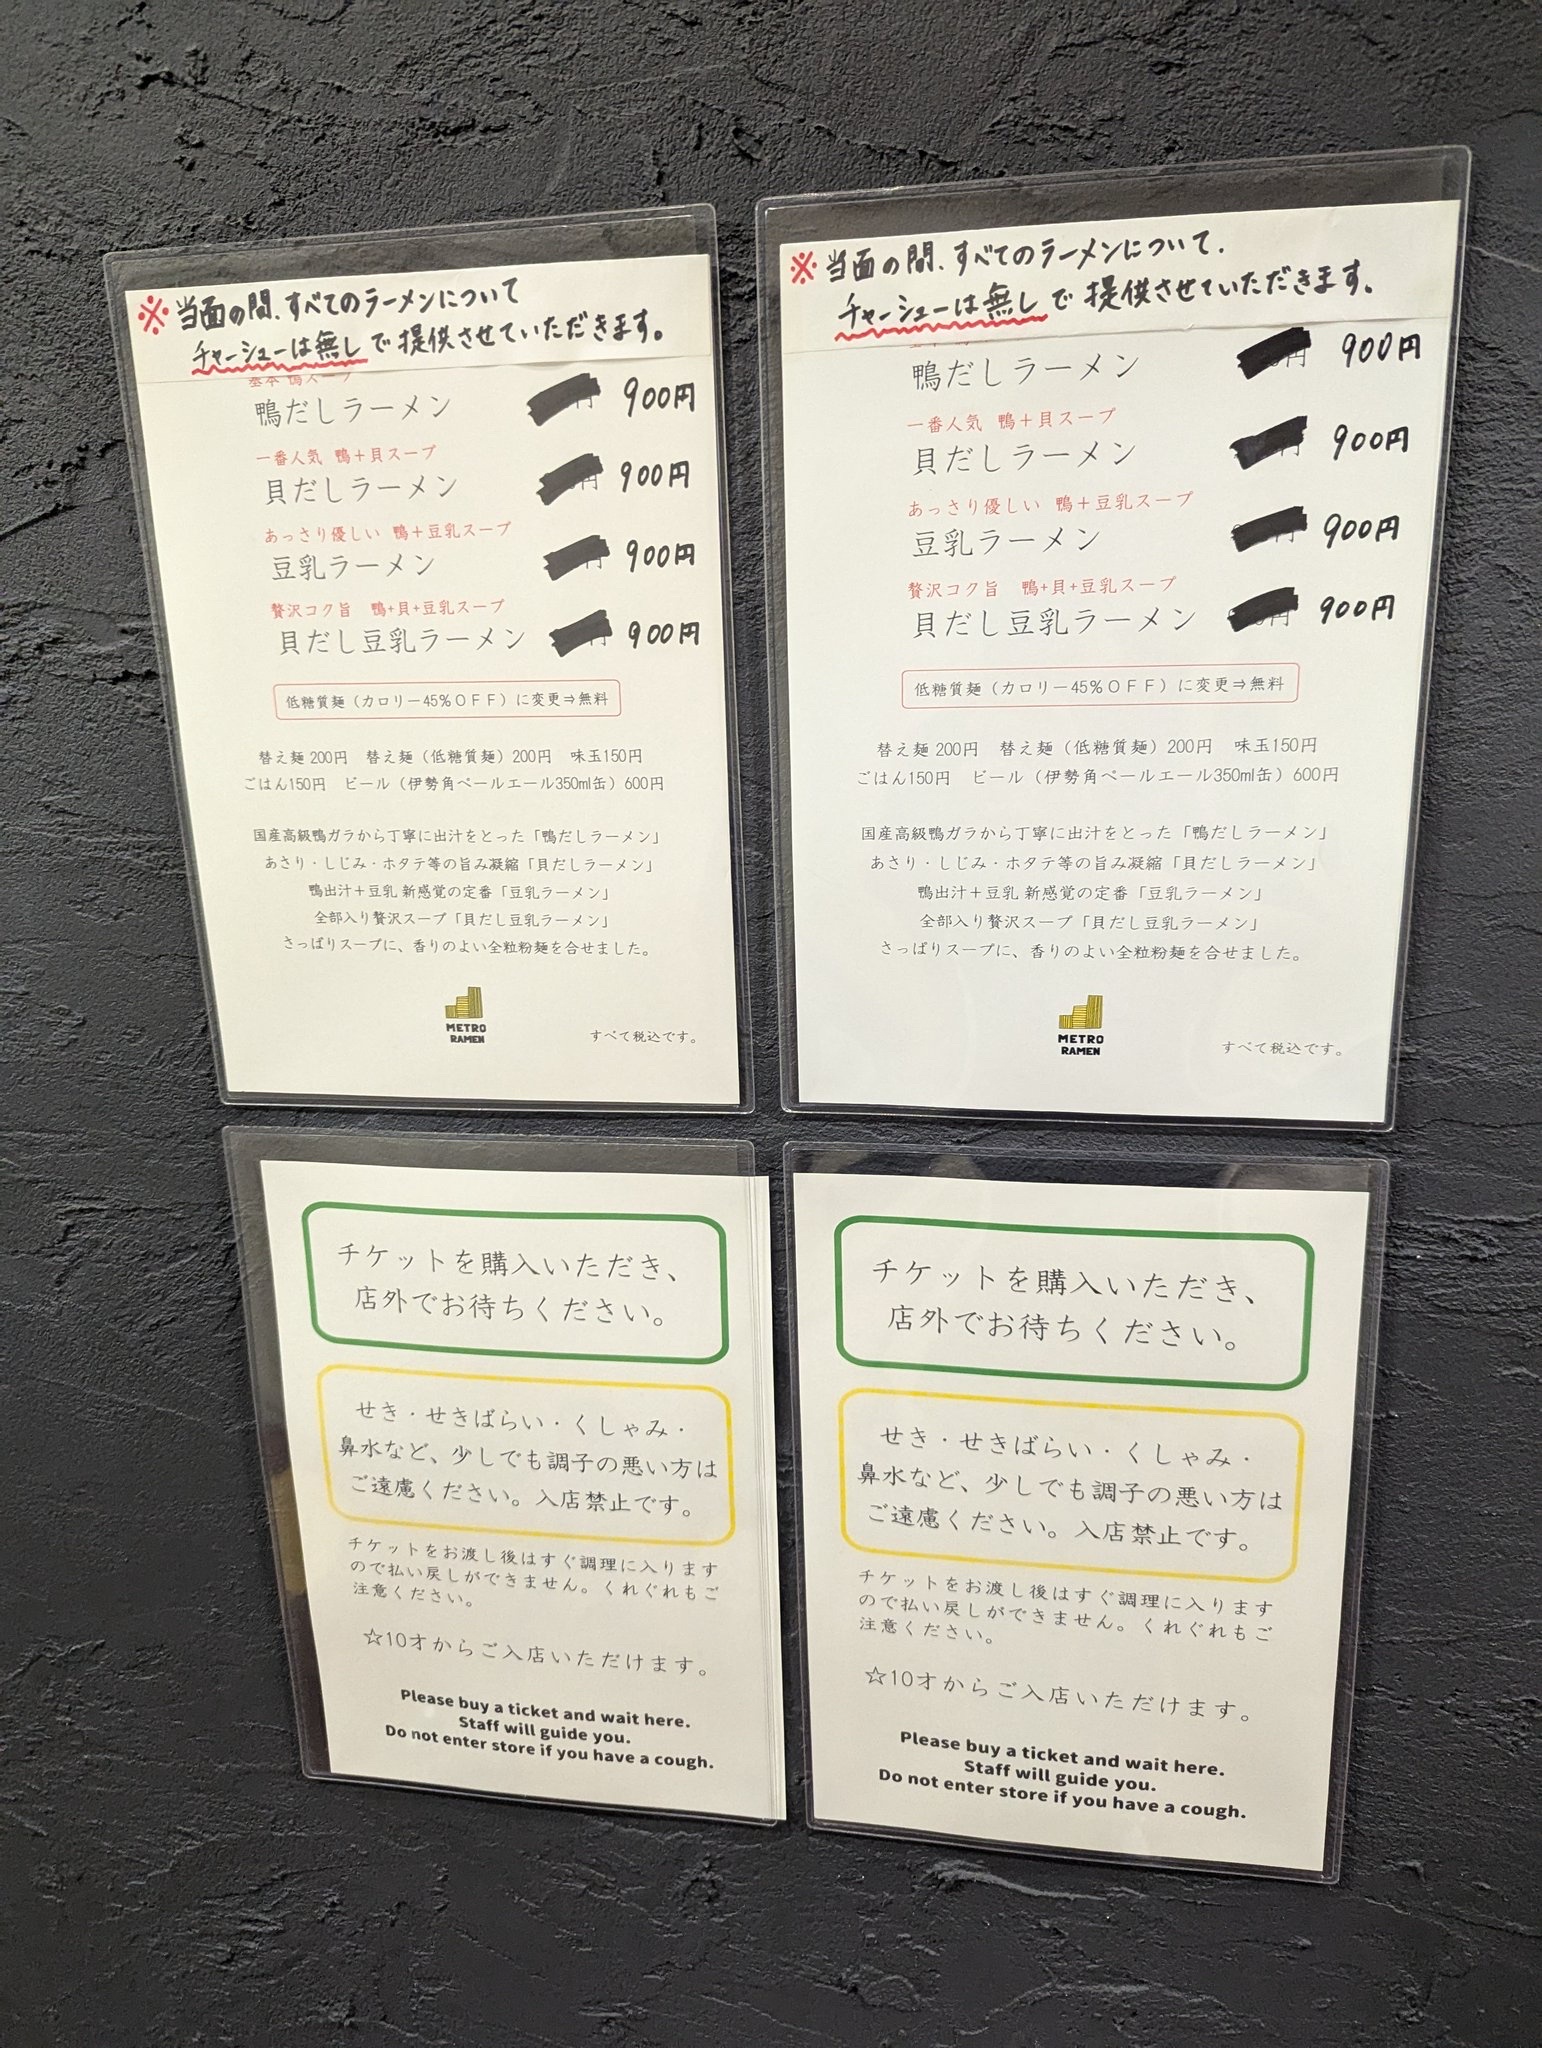 ※当面の間、すべてのラーメンについて
チャーシューは無しで提供させていただきます。
基本 鴨スープ
鴨だしラーメン 円 900円
一番人気 鴨＋貝スープ
貝だしラーメン 円 900円
あっさり優しい 鴨＋豆乳スープ
豆乳ラーメン 円 900円
贅沢コク旨 鴨+貝+豆乳スープ
貝だし豆乳ラーメン 円 900円
低糖質麺（カロリー45%ＯＦＦ）に変更⇒無料
替え麺 200円 替え麺（低糖質麺）200円 味玉150円
ごはん150円 ビール（伊勢角ペールエール350ml缶）600円
国産高級鴨ガラから丁寧に出汁をとった「鴨だしラーメン」
あさり・しじみ・ホタテ等の旨み凝縮「貝だしラーメン」
鴨出汁＋豆乳 新感覚の定番「豆乳ラーメン」
全部入り贅沢スープ「貝だし豆乳ラーメン」
さっぱりスープに、香りのよい全粒粉麺を合せました。
METRO
RAMEN
すべて税込です。
※当面の間、すべてのラーメンについて.
チャーシューは無しで提供させていただきます。
鴨だしラーメン 円 900円
一番人気 鴨＋貝スープ
貝だしラーメン 円 900円
あっさり優しい 鴨＋豆乳スープ
豆乳ラーメン 円 900円
贅沢コク旨 鴨+貝+豆乳スープ
貝だし豆乳ラーメン 円 900円
低糖質麺（カロリー45%ＯＦＦ）に変更⇒無料
替え麺 200円 替え麺（低糖質麺）200円 味玉150円
ごはん150円 ビール（伊勢角ペールエール350ml缶）600円
国産高級鴨ガラから丁寧に出汁をとった「鴨だしラーメン」
あさり・しじみ・ホタテ等の旨み凝縮「貝だしラーメン」
鴨出汁＋豆乳 新感覚の定番「豆乳ラーメン」
全部入り贅沢スープ「貝だし豆乳ラーメン」
さっぱりスープに、香りのよい全粒粉麺を合せました。
METRO
RAMEN
すべて税込です。
チケットを購入いただき、
店外でお待ちください。
せき・せきばらい・くしゃみ・
鼻水など、少しでも調子の悪い方は
ご遠慮ください。入店禁止です。
チケットをお渡し後はすぐ調理に入ります
ので払い戻しができません。くれぐれもご
注意ください。
☆10才からご入店いただけます。
Please buy a ticket and wait here.
Staff will guide you.
Do not enter store if you have a cough.
チケットを購入いただき、
店外でお待ちください。
せき・せきばらい・くしゃみ・
鼻水など、少しでも調子の悪い方は
ご遠慮ください。入店禁止です。
チケットをお渡し後はすぐ調理に入ります
ので払い戻しができません。くれぐれもご
注意ください。
☆10才からご入店いただけます。
Please buy a ticket and wait here.
Staff will guide you.
Do not enter store if you have a cough.